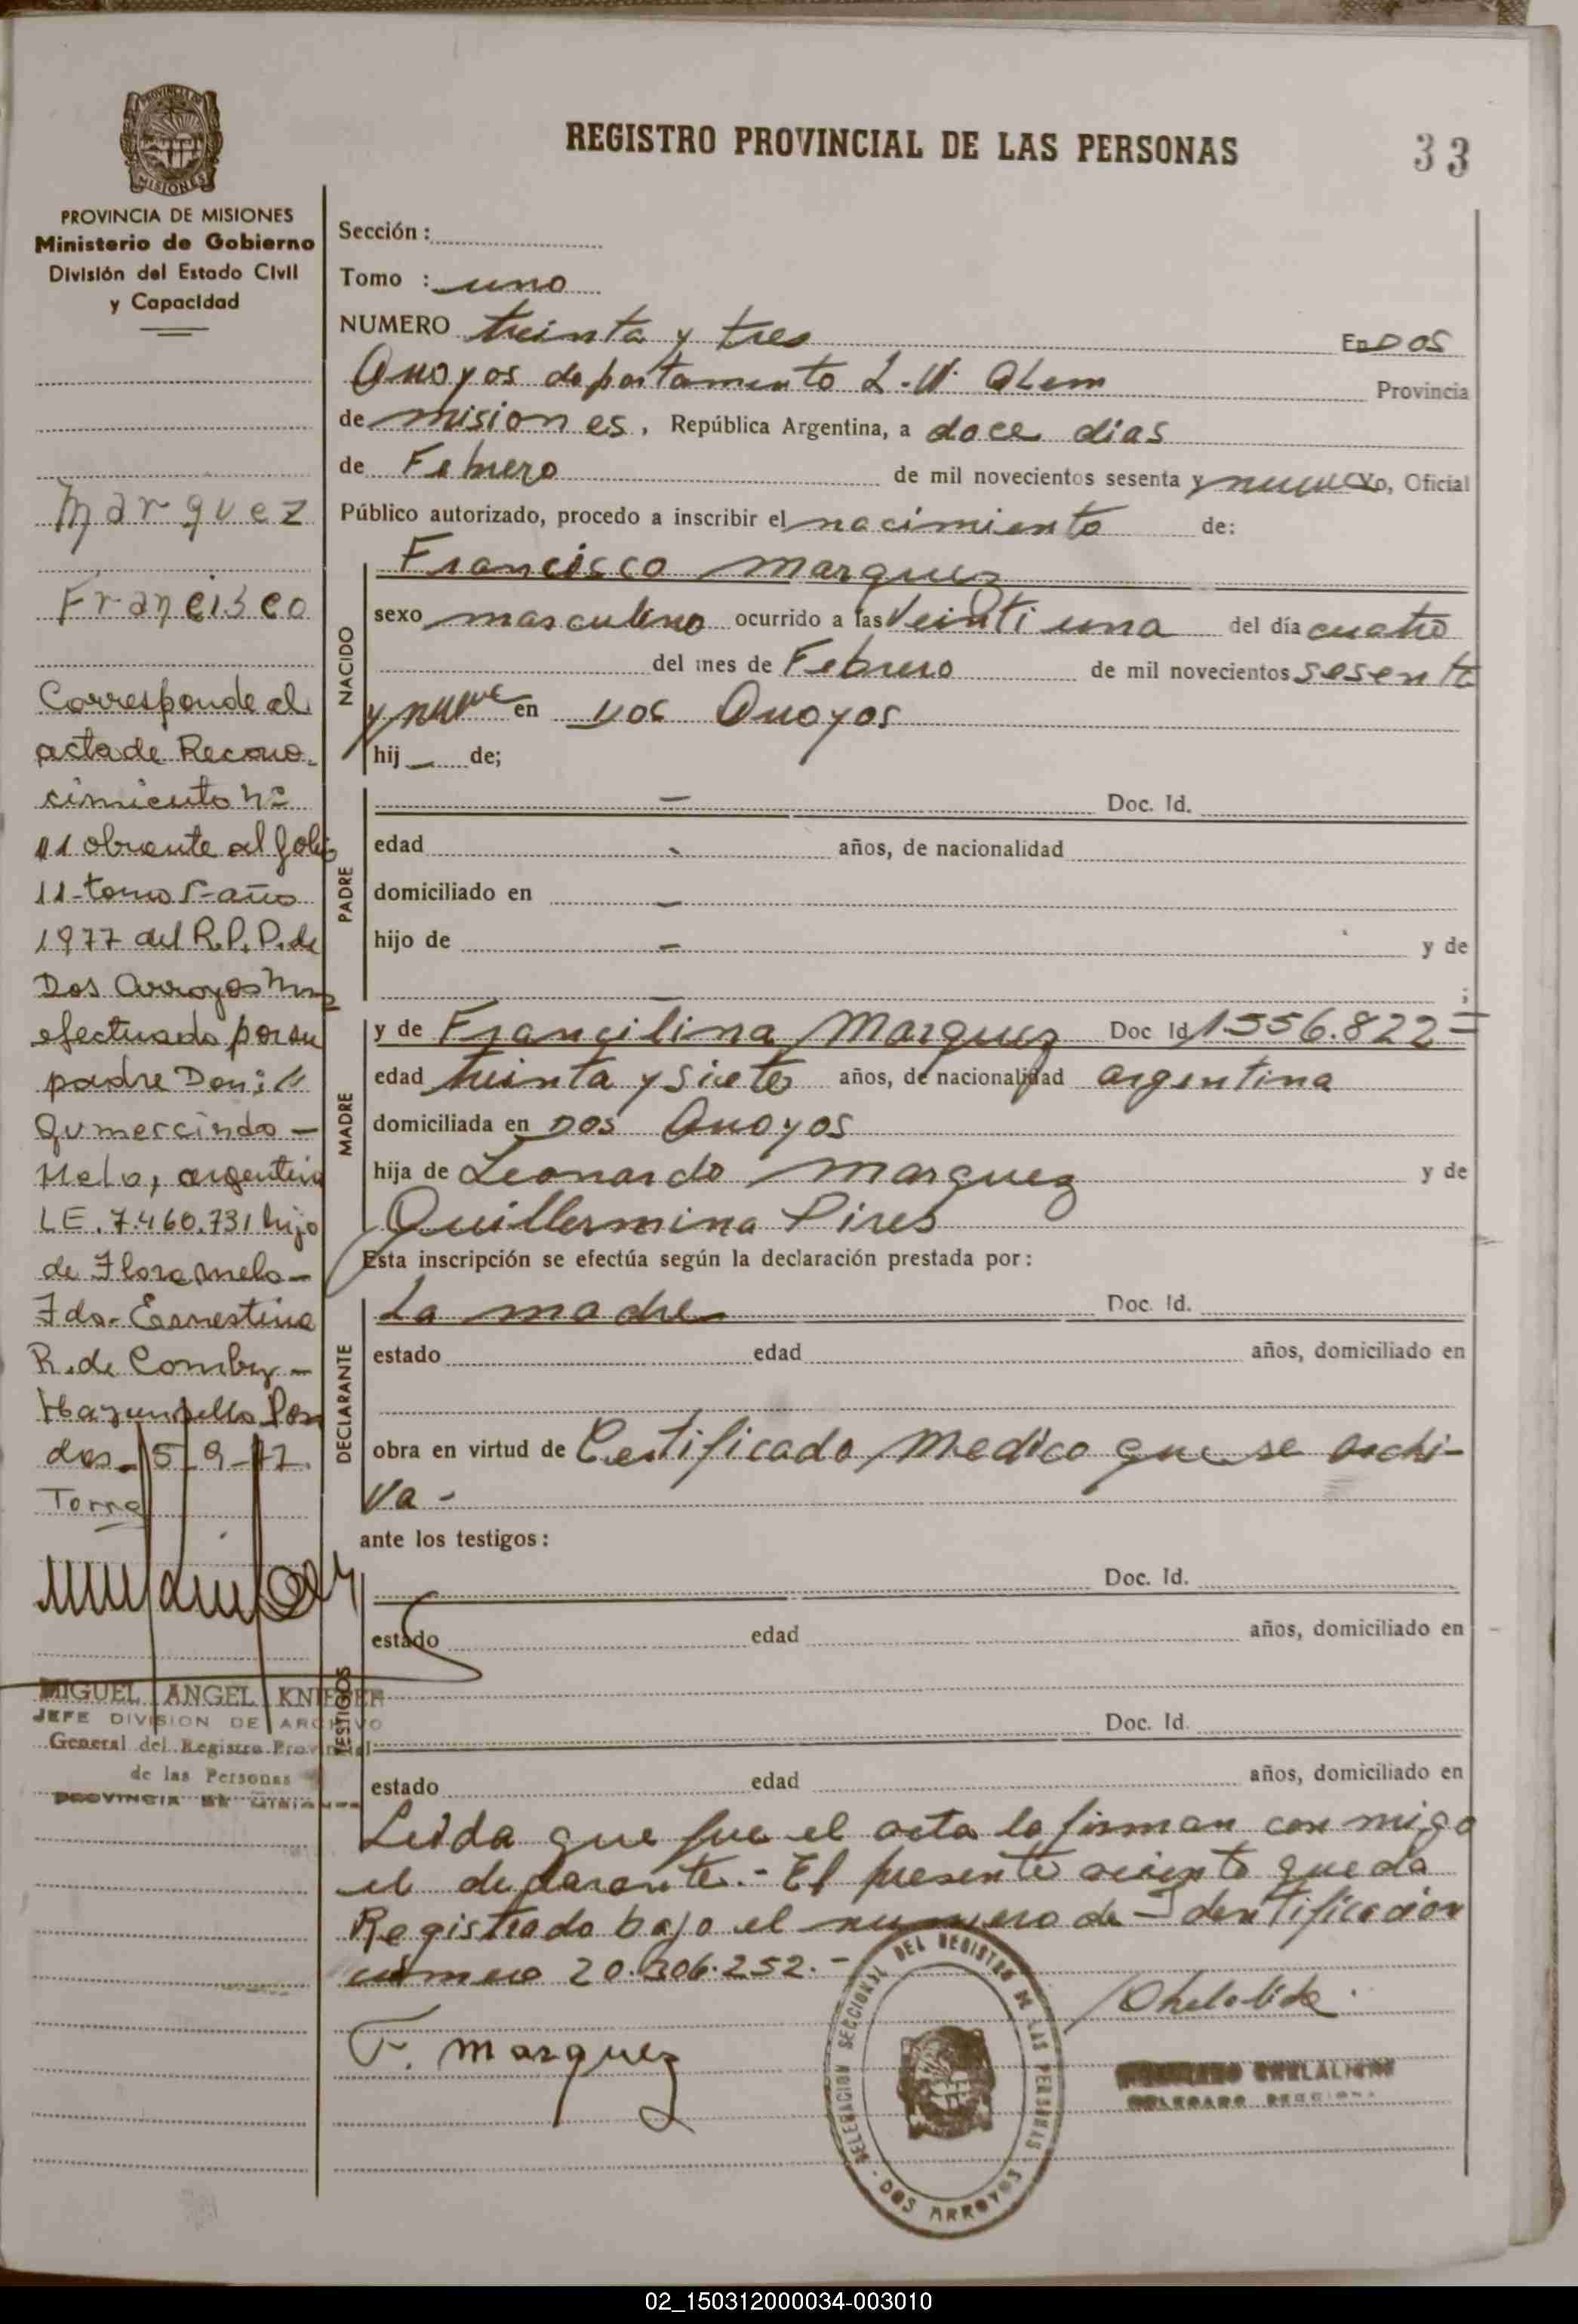 PROVINCIA DE
MISIONES
PROVINCIA DE MISIONES
Ministerio de Gobierno
División del Estado Civil
y Capacidad
Marquez
Francisco
Corresponde al
acta de Recono-
cimiento Nº
11 obrante al folio
11-tomo 1-año
1977 del R.P.P. de
Dos Arroyos Mnes
efectuado por su
padre Don:
Gumercindo -
Melo, argentino
L.E. 7.460.731 hijo
de Flora melo -
Fdo. Ernestina
R. de Comby -
Posa
das - 5-9-77.
Torre
MIGUEL ANGEL KNIESER
JEFE DIVISION DE ARCHIVO
General del Registro Provincial
de las Personas
PROVINCIA DE MISIONES
REGISTRO PROVINCIAL DE LAS PERSONAS
33
Sección :
Tomo : uno
NUMERO treinta y tres En DOS
Arroyos departamento L.N. Alem Provincia
de misiones, República Argentina, a doce dias
de Febrero de mil novecientos sesenta y nueve Yo, Oficial
Público autorizado, procedo a inscribir el nacimiento de:
NACIDO
Francisco Marquez
sexo masculino ocurrido a las veinti una del día cuatro
del mes de Febrero de mil novecientos sesenta
y nueve en Dos Arroyos
hij — de;
PADRE
— Doc. Id.
edad - años, de nacionalidad
domiciliado en —
hijo de — y de
—;
MADRE
y de Francilina Marquez Doc Id 1556.822=
edad treinta y siete años, de nacionalidad argentina
domiciliada en Dos Arroyos
hija de Leonardo Marquez y de
Guillermina Pires
Esta inscripción se efectúa según la declaración prestada por:
DECLARANTE
La madre Doc. Id.
estado edad años, domiciliado en
obra en virtud de Certificado Medico que se archi-
va -
ante los testigos:
TESTIGOS
Doc. Id.
estado edad años, domiciliado en
Doc. Id.
estado edad años, domiciliado en
Leida que fue el acta la firman con migo
el declarante.- El presente aciento queda
Registrado bajo el numero de Identificacion
numero 20.306.252.-
F. Marquez
DELEGACION SECCIONAL DEL REGISTRO DE LAS PERSONAS
- DOS ARROYOS -
02_150312000034-003010